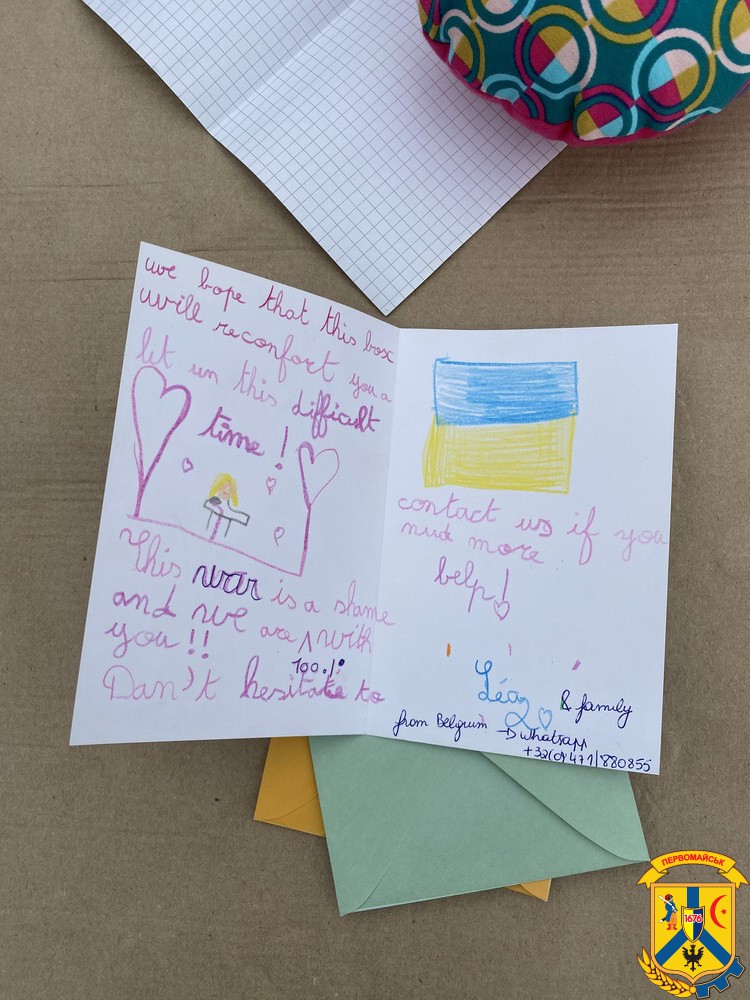 we hope that this box
will reconfort you a
let un this difficult
time!
This war is a shame
and we are with
you!! 100%
Dan't hesitate to
contact us if you
nud more
help!
Léa & family
from Belgium → whatsapp
+32(0)471/880855
ПЕРВОМАЙСЬК
1676